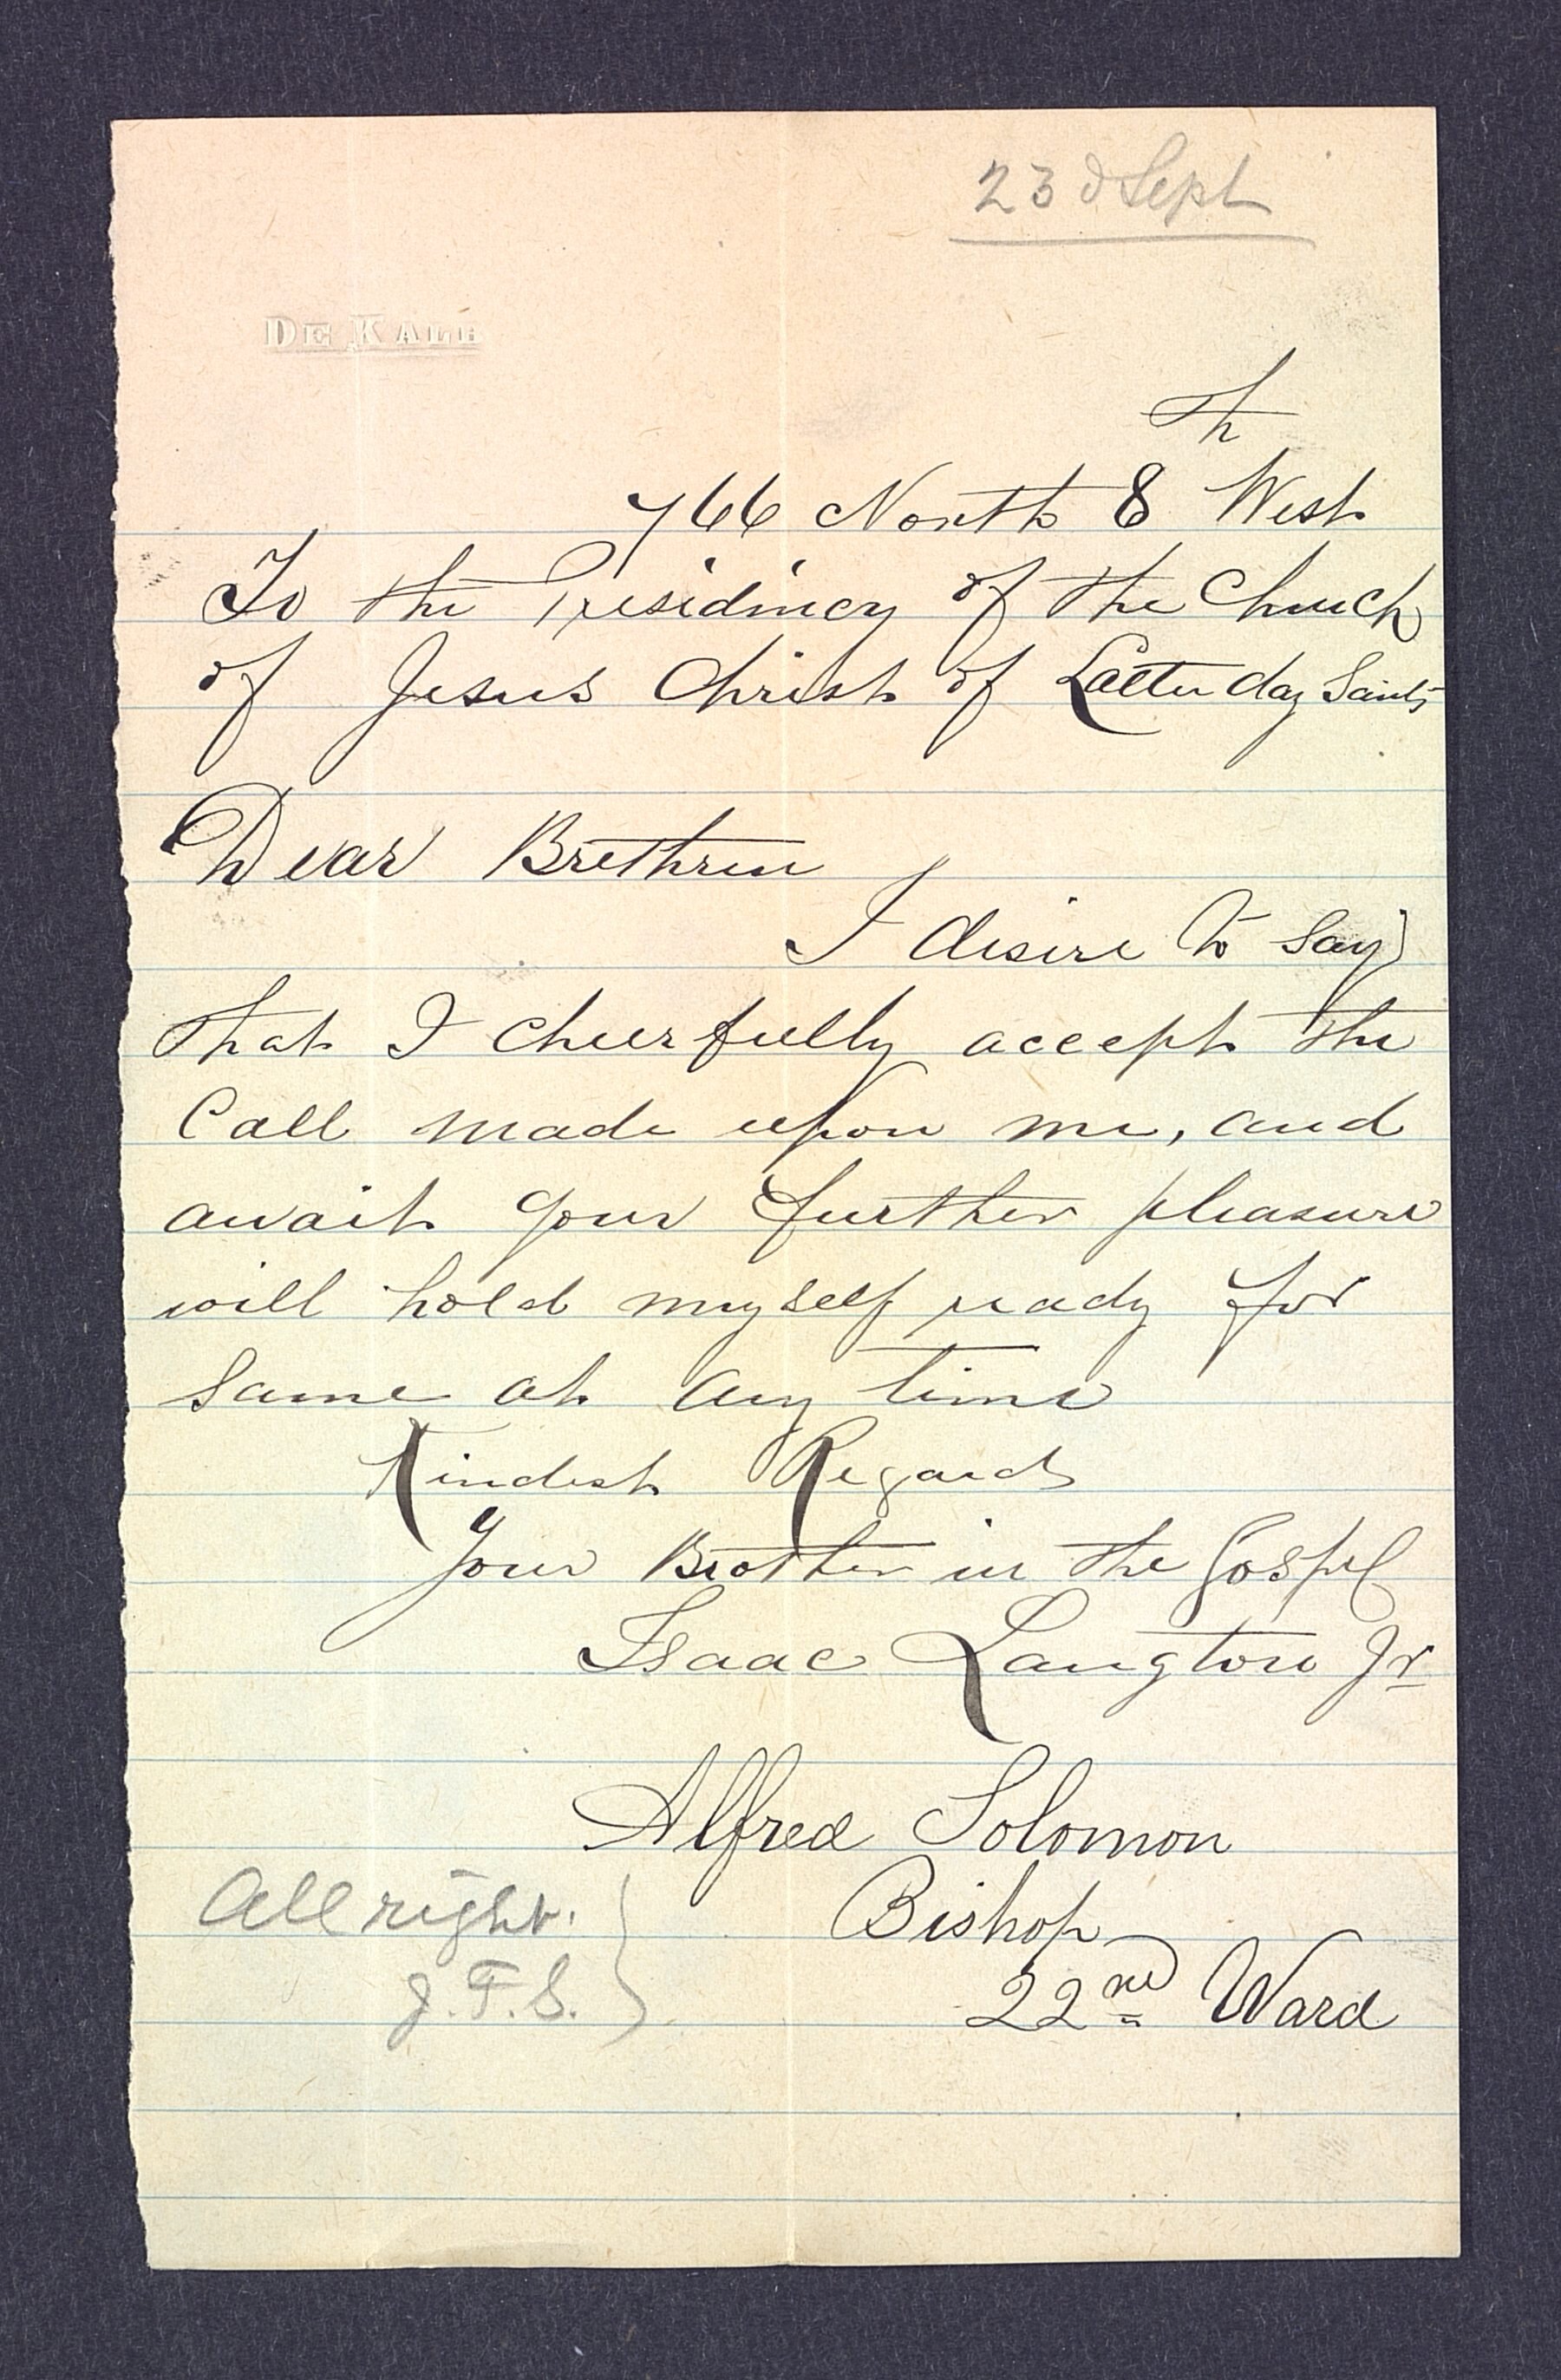 23d Sept
DE KALB
th
766 North 8 West
To the Presidincy of the Church
of Jesus Christ of Latter day Saints
Dear Brethren
I desire to say
that I cheerfully accept the
Call made upon me, and
await your further pleasure
will hold myself ready for
same at any time
Kindest Regards
Your Brother in the Gospel
Isaac Langton Jr
Alfred Solomon
Bishop
22nd Ward
All right.
J. F. S.